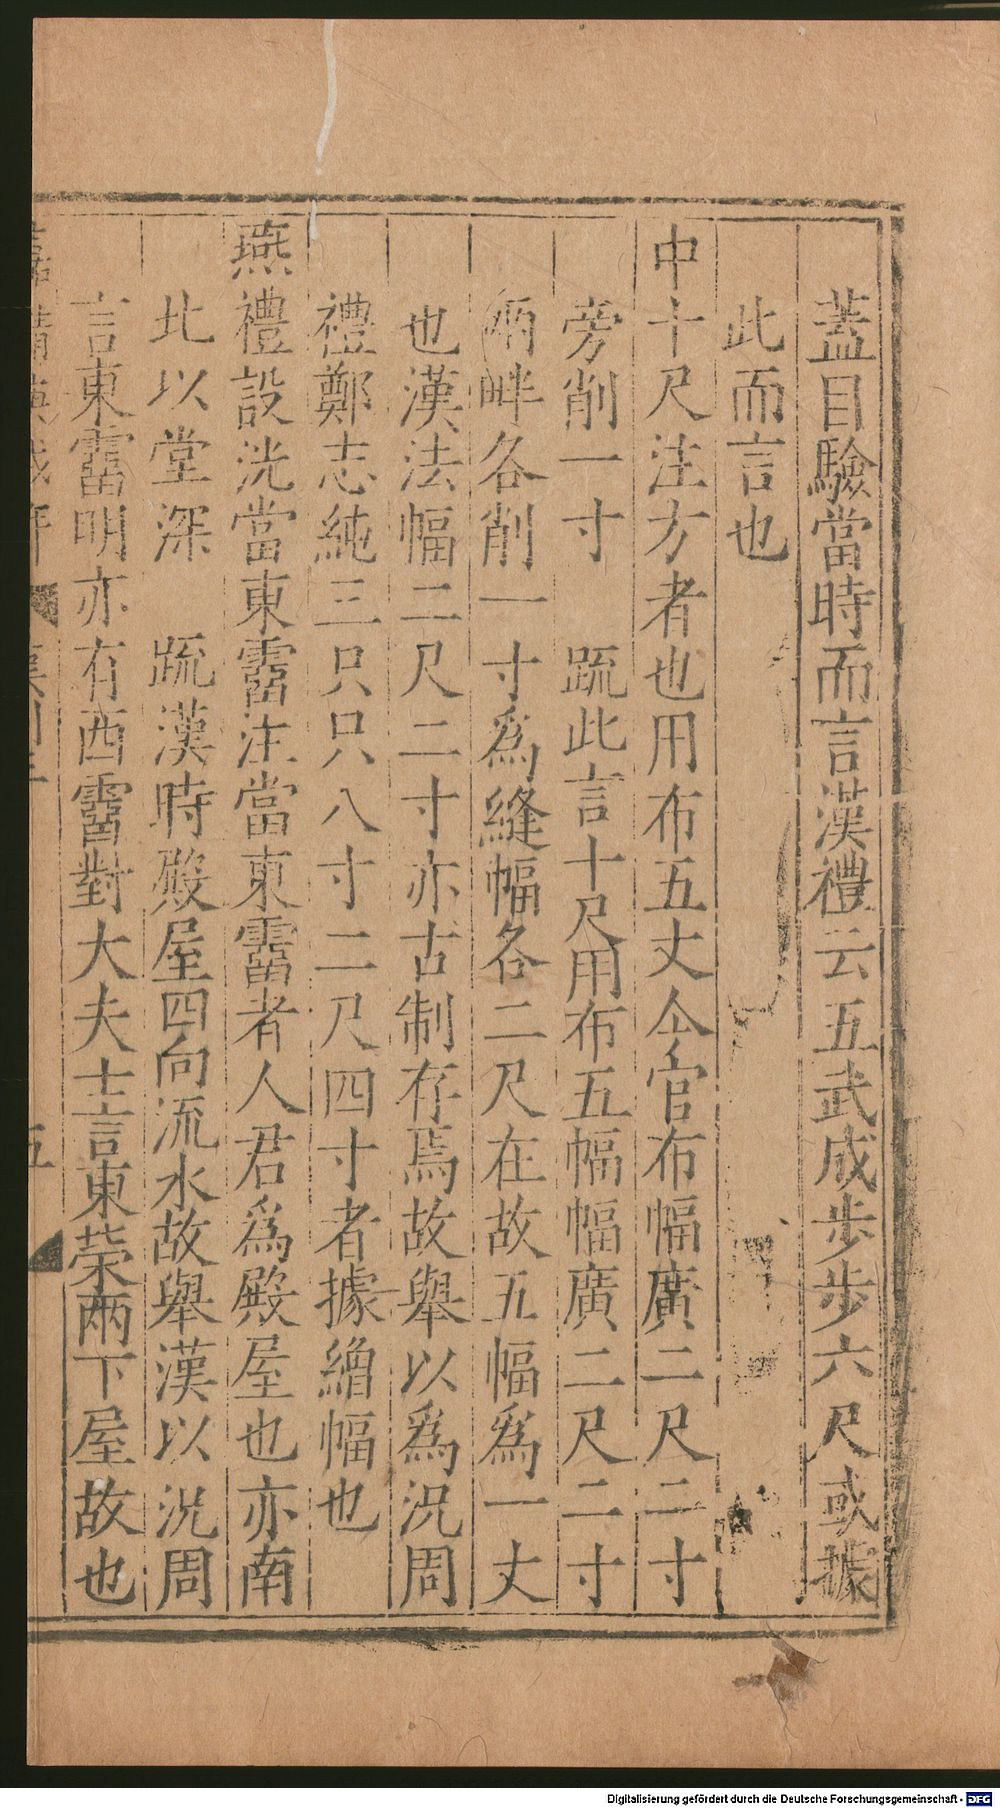 蓋目驗當時而言漢禮云五武成步步六尺或據
此而言也
中十尺注方者也用布五丈今官布幅廣二尺二寸
旁削一寸　疏此言十尺用布五幅幅廣二尺二寸
兩畔各削一寸爲縫幅各二尺在故五幅爲一丈
也漢法幅二尺二寸亦古制存焉故舉以爲況周
禮鄭志純三只只八寸二尺四寸者據繒幅也
燕禮設洗當東霤注當東霤者人君爲殿屋也亦南
北以堂深　疏漢時殿屋四向流水故舉漢以況周
言東霤明亦有西霤對大夫士言東榮兩下屋故也
五
Digitalisierung gefördert durch die Deutsche Forschungsgemeinschaft - DFG